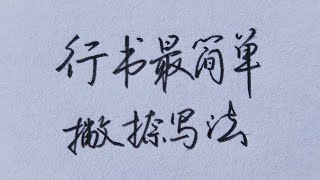 行书最简单
撇捺写法